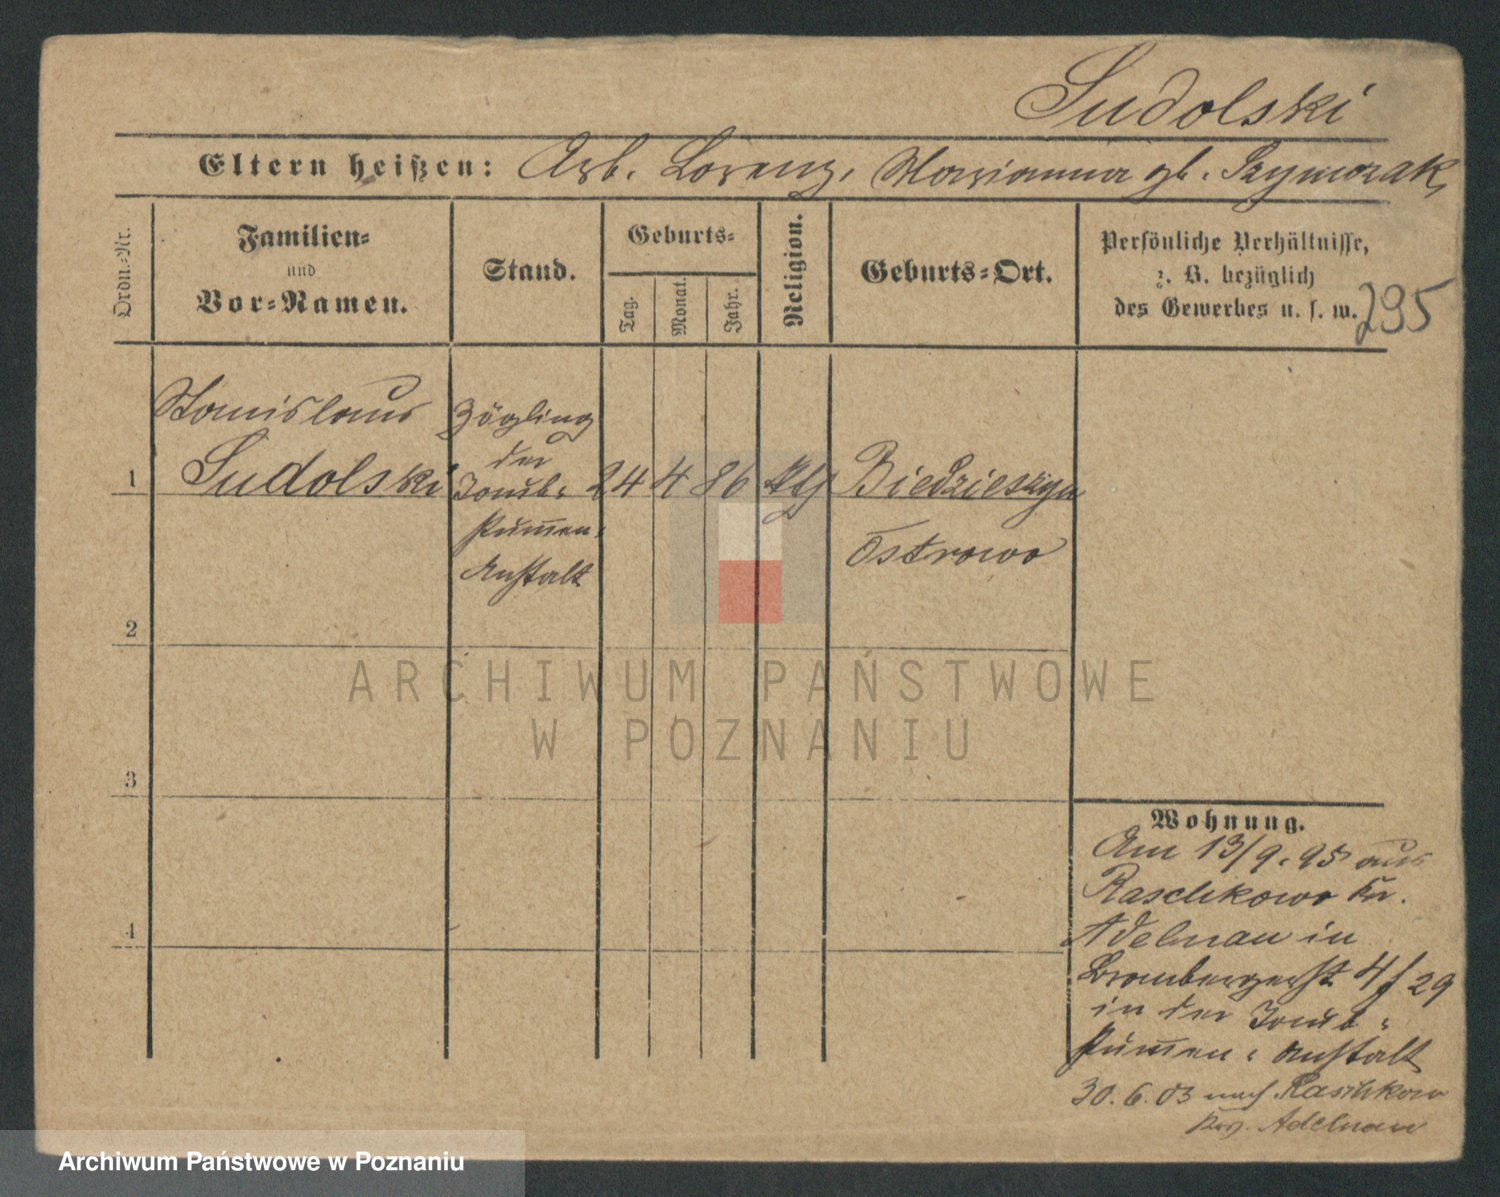 Sudolski
Eltern heißen: Arb. Lorenz, Marianna gb. Szymczak,
Ordn.-Nr.
Familien-
und
Vor-Namen.
Stand.
Geburts-
Tag.
Monat.
Jahr.
Religion.
Geburts-Ort.
Persönliche Verhältnisse,
z. B. bezüglich
des Gewerbes u. s. w.
295
1
Stanislaus
Sudolski
Zögling
der
Taub-
stummen-
Anstalt
24 4 86 Ktl
Biedzieszyn
Ostrowo
2
3
4
Wohnung.
Am 13/9. 95 aus
Raschkowo Kr.
Adelnau in
Brombergerst 4 f 29
in der Taub-
stummen-Anstalt
30. 6. 03 nach Raschkow
Krs. Adelnau
ARCHIWUM PAŃSTWOWE
W POZNANIU
Archiwum Państwowe w Poznaniu